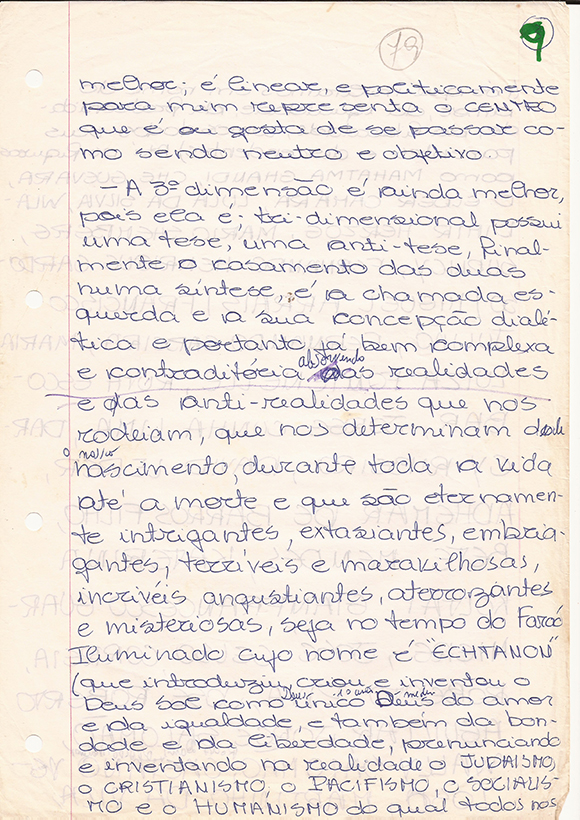 79
9
melhor; é linear, e politicamente
para mim representa o CENTRO
que é ou gosta de se passar co-
mo sendo neutro e objetivo
— A 3ª dimensão é ainda melhor,
pois ela é tri-dimensional possui
uma tese, uma anti-tese, final-
mente o casamento das duas
numa síntese, é a chamada es-
querda e a sua concepção dialé-
tica e portanto já bem complexa
e contraditória das realidades
e das anti-realidades que nos
rodeiam, que nos determinam desde
o nosso
nascimento, durante toda a vida
até a morte e que são eternamen-
te intrigantes, extasiantes, embria-
gantes, terríveis e maravilhosas,
incríveis angustiantes, aterrorizantes
e misteriosas, seja no tempo do Faraó
Iluminado cujo nome é "ECHTANON"
(que introduziu, criou e inventou o
Deus Sol como único Deus do amor
e da igualdade, e também da bon-
dade e da liberdade, prenunciando
e inventando na realidade o JUDAISMO,
o CRISTIANISMO, o PACIFISMO, o SOCIALIS-
MO e o HUMANISMO do qual todos nos